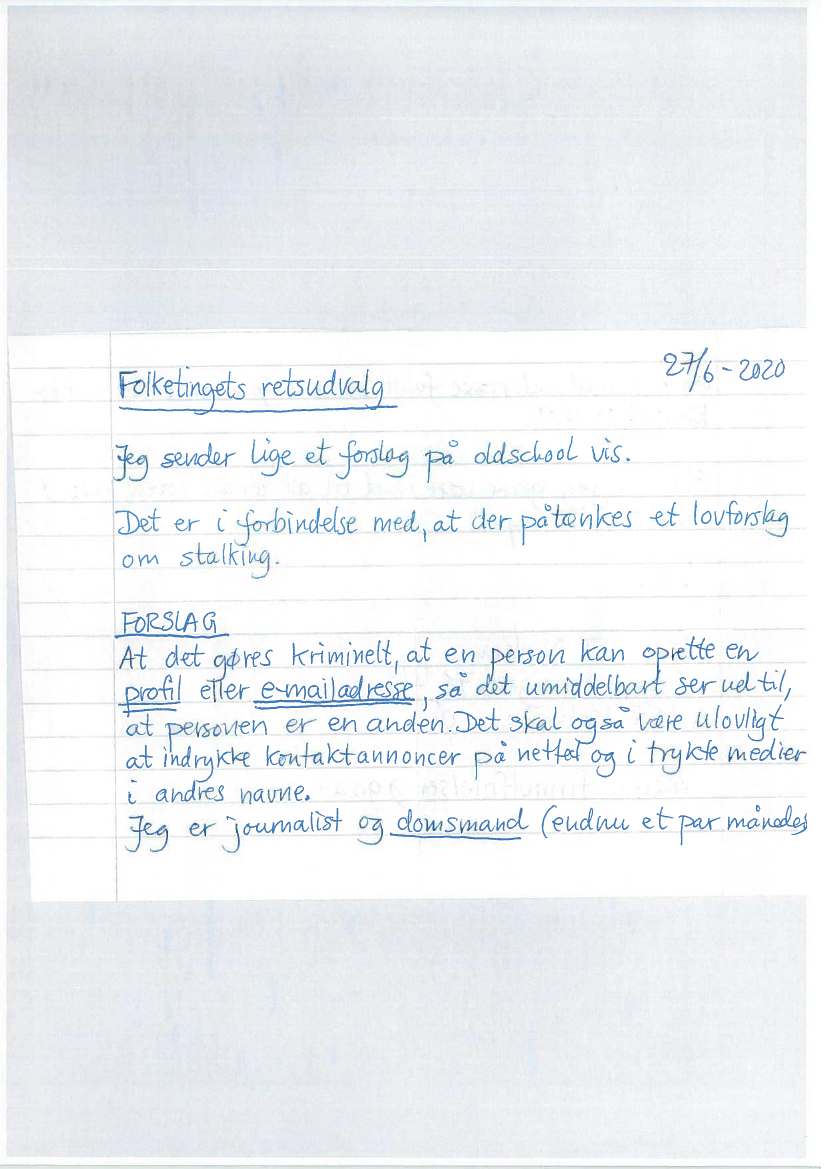 27/6-2020
Folketingets retsudvalg
Jeg sender lige et forslag på oldschool vis.
Det er i forbindelse med, at der påtænkes et lovforslag
om stalking.
FORSLAG
At det gøres kriminelt, at en person kan oprette en
profil eller e-mailadresse, så det umiddelbart ser ud til,
at personen er en anden. Det skal også være ulovligt
at indrykke kontaktannoncer på nettet og i trykte medier
i andres navne.
Jeg er journalist og domsmand (endnu et par måneder